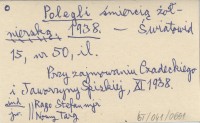 Polegli śmiercią żoł-
nierską, 1938. — Światowid
15, nr 50, il.
Przy zajmowaniu Czadeckiego
i Jaworzyny Spiskiej, XI 1938.
Rago Stefan mjr
Nowy Targ